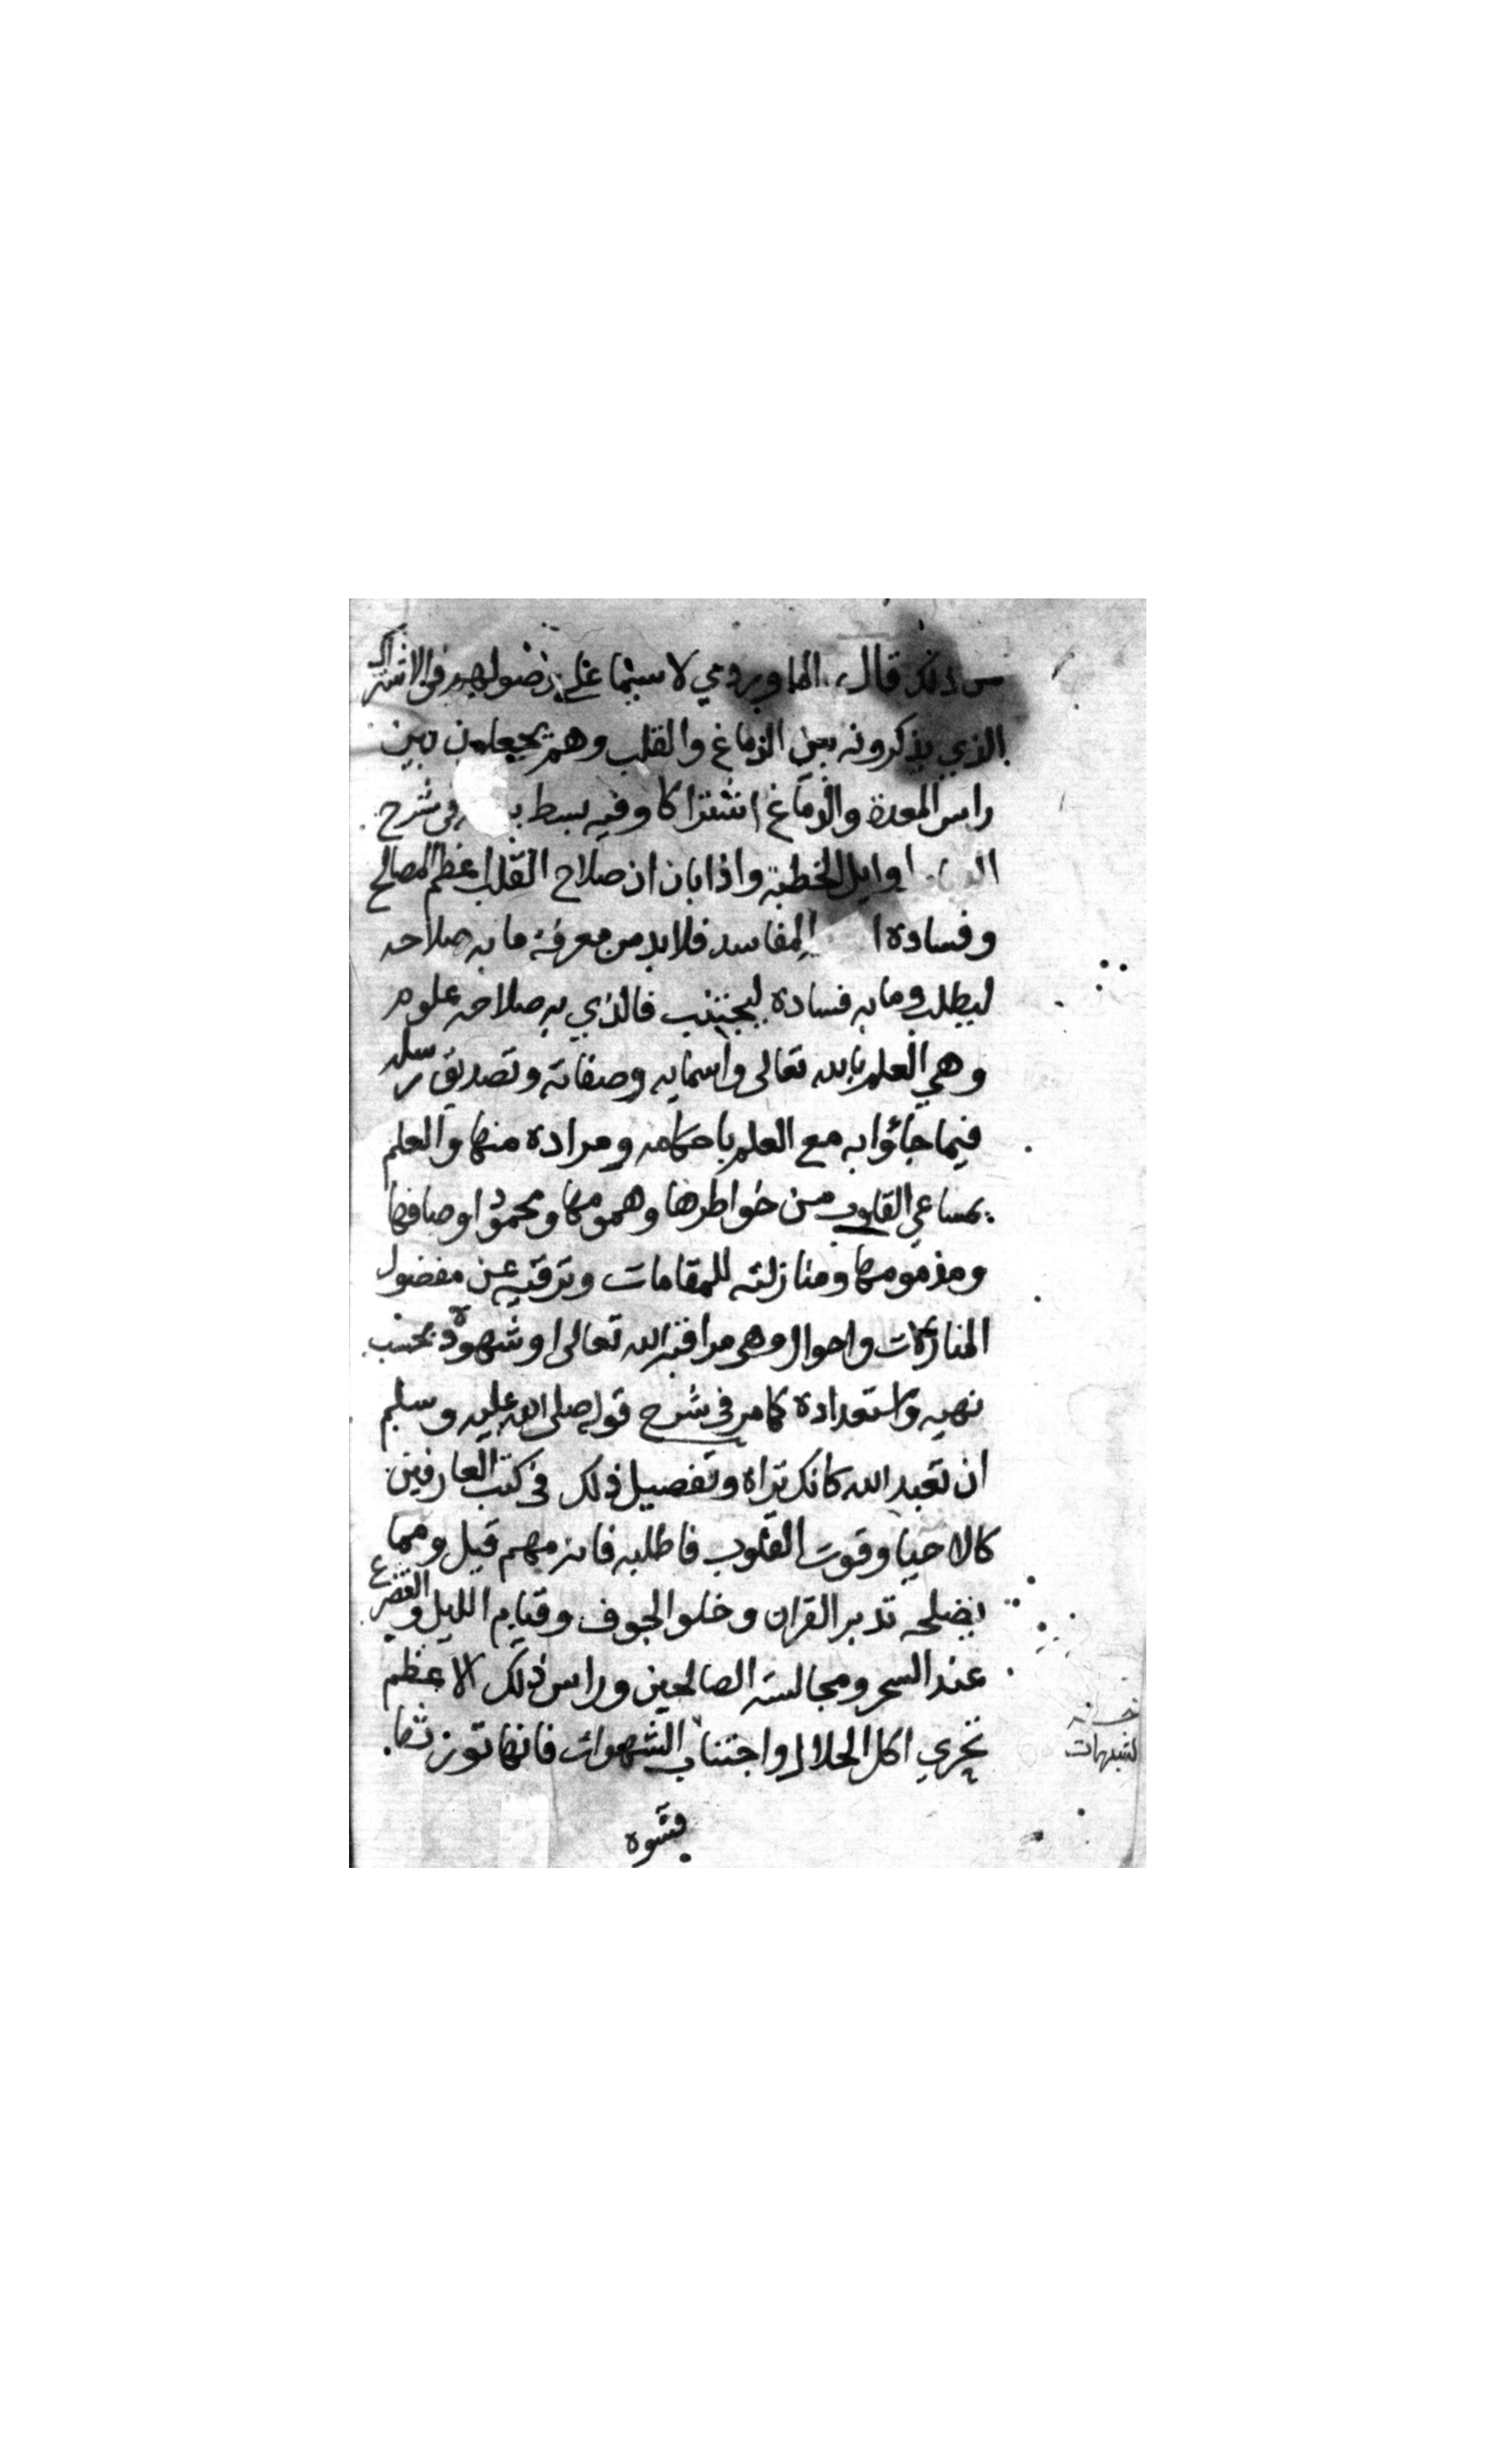 من ذلك قال الماوردي لا سيما على اصولهم في الاشتراك
الذي يذكرونه بين الدماغ والقلب وهم يجعلون بين
راس المعدة والدماغ اشتراكا وفيه بسط في شرح
اوايل الخطبة واذا بان ان صلاح القلب اعظم المصالح
وفساده المفاسد فلا بد من معرفة ما به صلاحه
ليطلب وما به فساده ليجتنب فالذي به صلاحه علوم
وهي العلم بالله تعالى واسمايه وصفاته وتصديق رسله
فيما جاؤا به مع العلم باحكامه ومراده منها والعلم
بمساعي القلوب من خواطرها وهمومها ومحمود اوصافها
ومذمومها ومنازلته للمقامات وترقيه عن مفضول
المنازلات واحوال وهي مراقبة الله تعالى او شهوده بحسب
تهيه واستعداده كما مر في شرح قوله صلى الله عليه وسلم
ان تعبد الله كانك تراه وتفصيل ذلك في كتب العارفين
كالاحيا وقوت القلوب فاطلبه فانه مهم قيل ومما
يصلحه تدبر القران وخلو الجوف وقيام الليل والتضرع
عند السحر ومجالسة الصالحين وراس ذلك الاعظم
تحري اكل الحلال واجتناب الشهوات فانها تورثها
الشبهات
قسوه